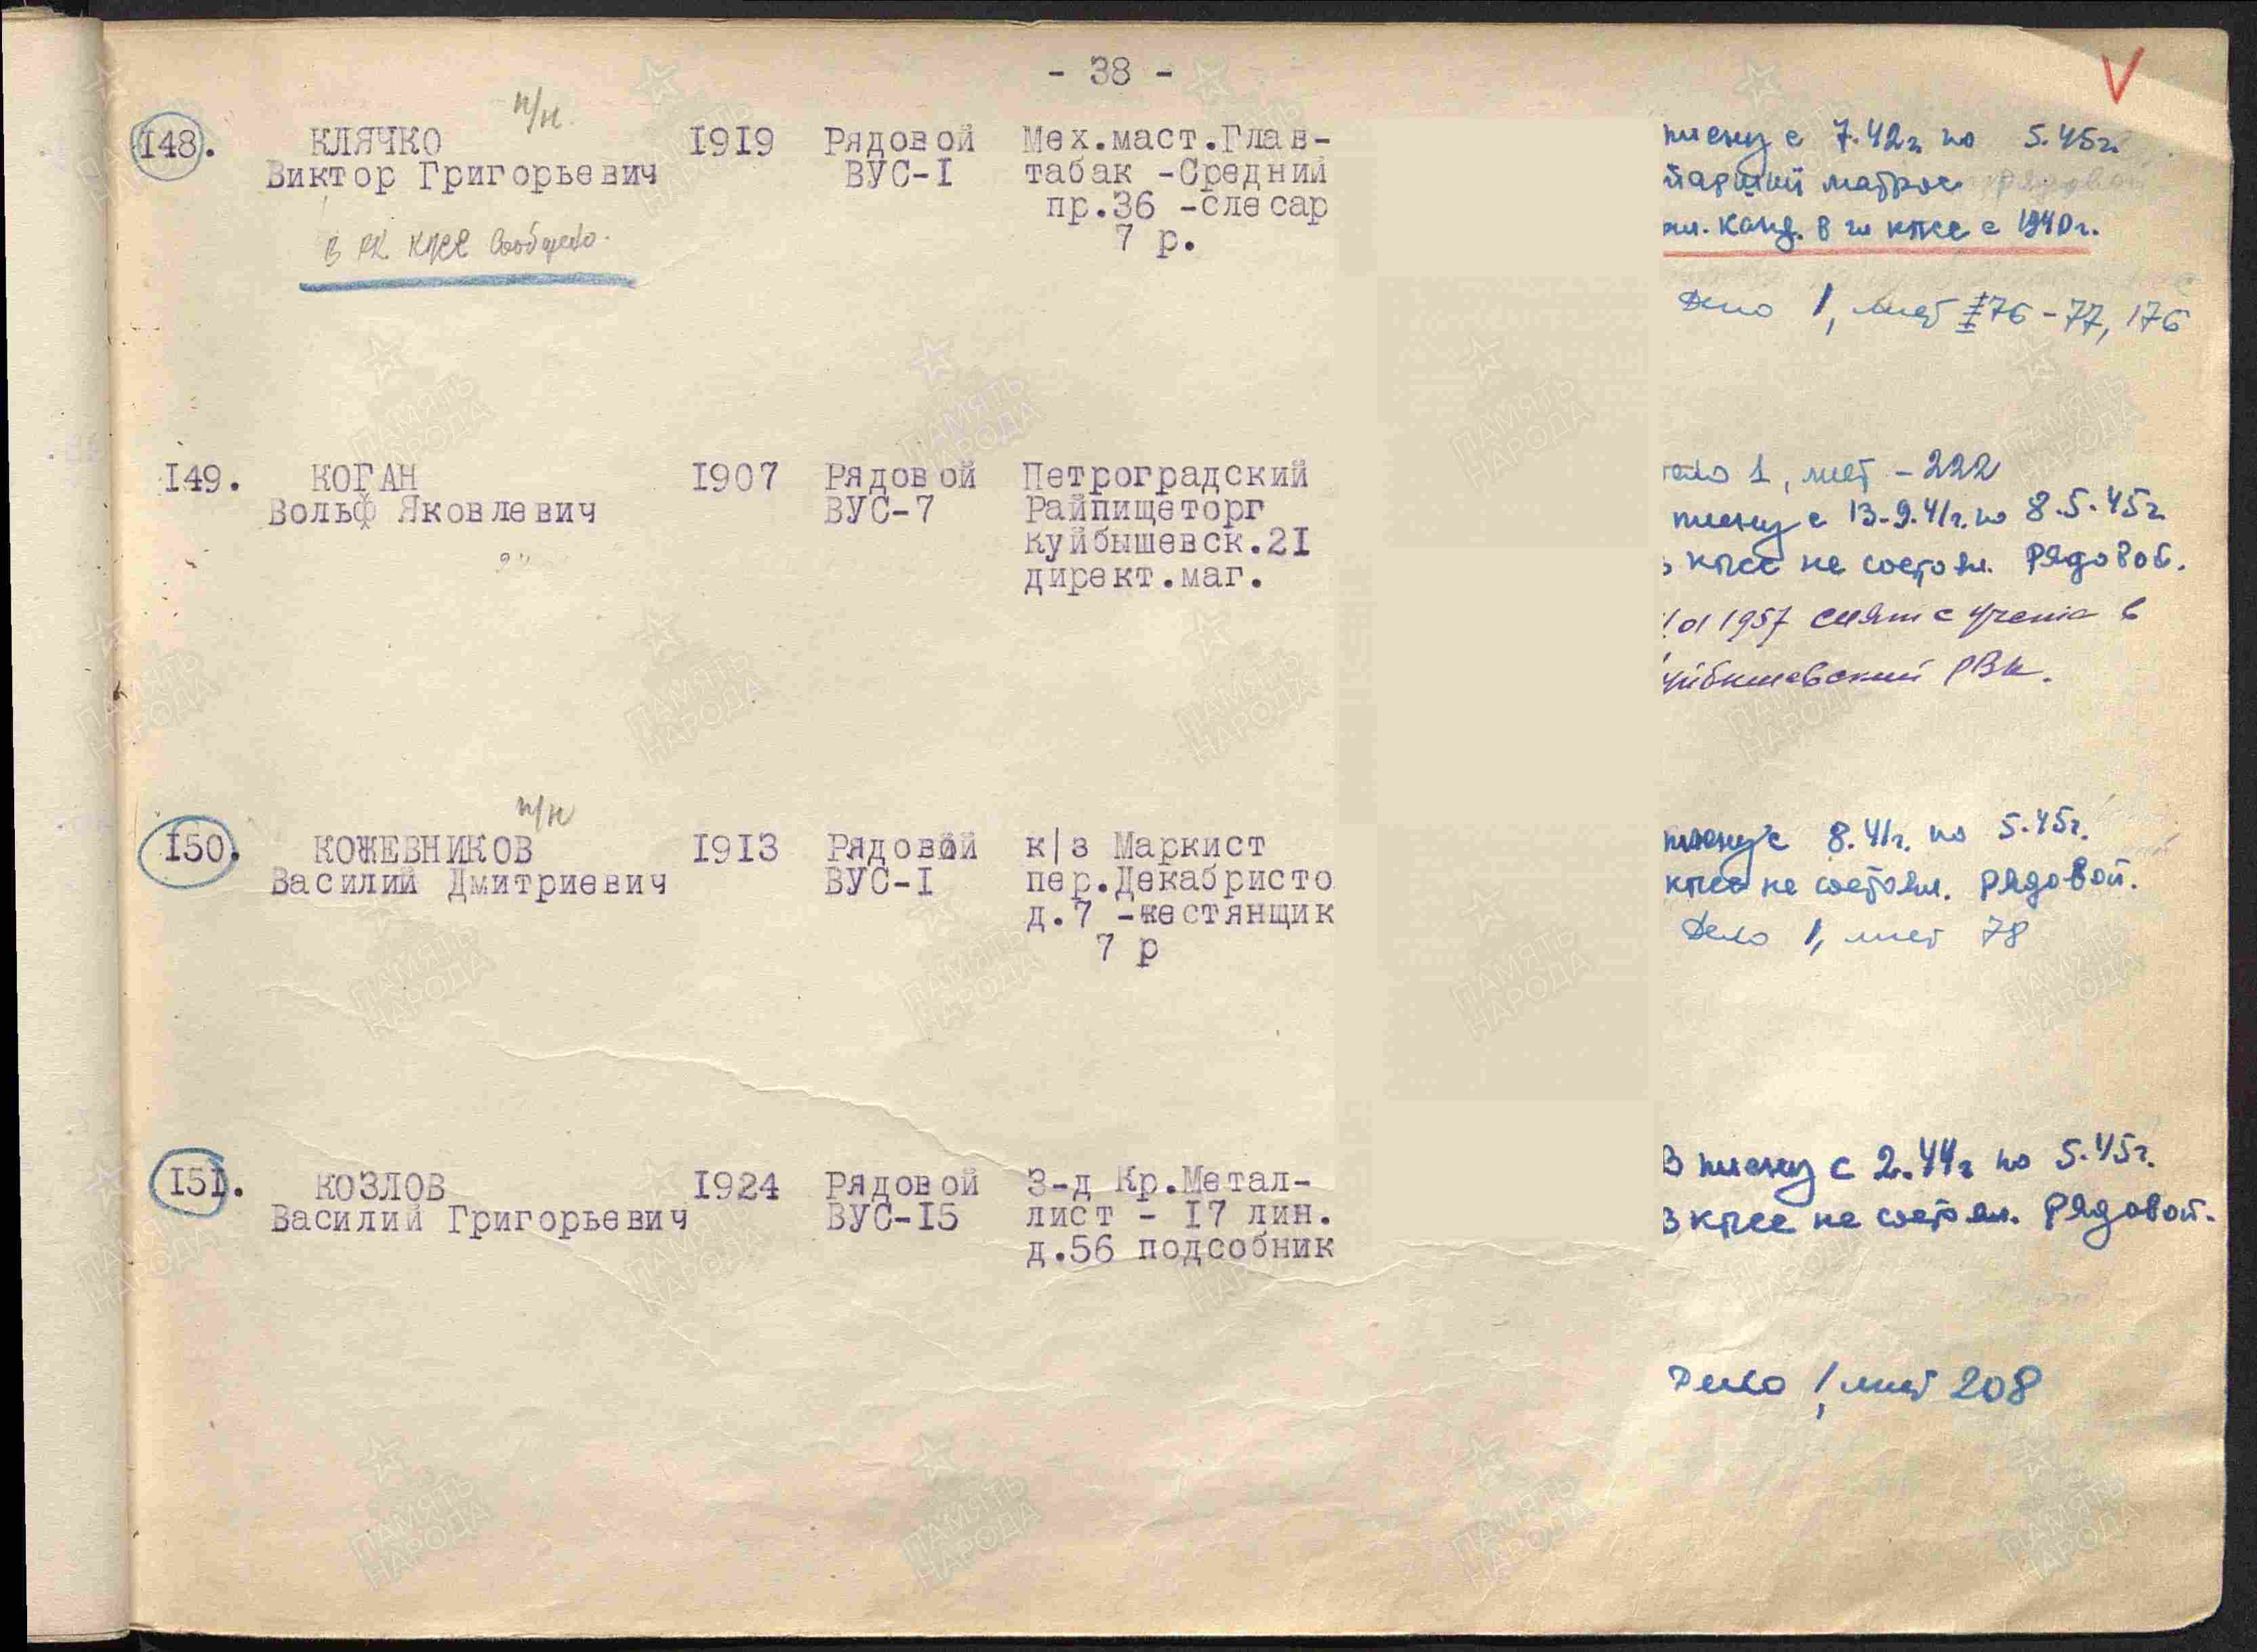 - 38 -
148. КЛЯЧКО п/н 1919 Рядовой Мех.маст.Глав-
Виктор Григорьевич ВУС-I табак -Средний
пр.36 -слесар
7 р.
В РК КПСС сообщено.
плену с 7.42г. по 5.45г.
тарший матрос рядовой
канд. в чл КПСС с 1940г.
Дело 1, лист 76-77, 176
149. КОГАН 1907 Рядовой Петроградский
Вольф Яковлевич ВУС-7 Райпищеторг
Куйбышевск.21
директ.маг.
ело 1, лист - 222
плену с 13.9.41г. по 8.5.45г.
КПСС не состоял. Рядовой.
1957 снят с учета в
уйбышевский РВК.
150. КОЖЕВНИКОВ п/н 1913 Рядовой к/з Маркист
Василий Дмитриевич ВУС-I пер.Декабристо
д.7 -жестянщик
7 р
плену с 8.41г. по 5.45г.
КПСС не состоял. Рядовой.
Дело 1, лист 78
151. КОЗЛОВ 1924 Рядовой З-д Кр.Метал-
Василий Григорьевич ВУС-15 лист - 17 лин.
д.56 подсобник
В плену с 2.44г. по 5.45г.
В КПСС не состоял. Рядовой.
Дело 1, лист 208
ПАМЯТЬ
НАРОДА